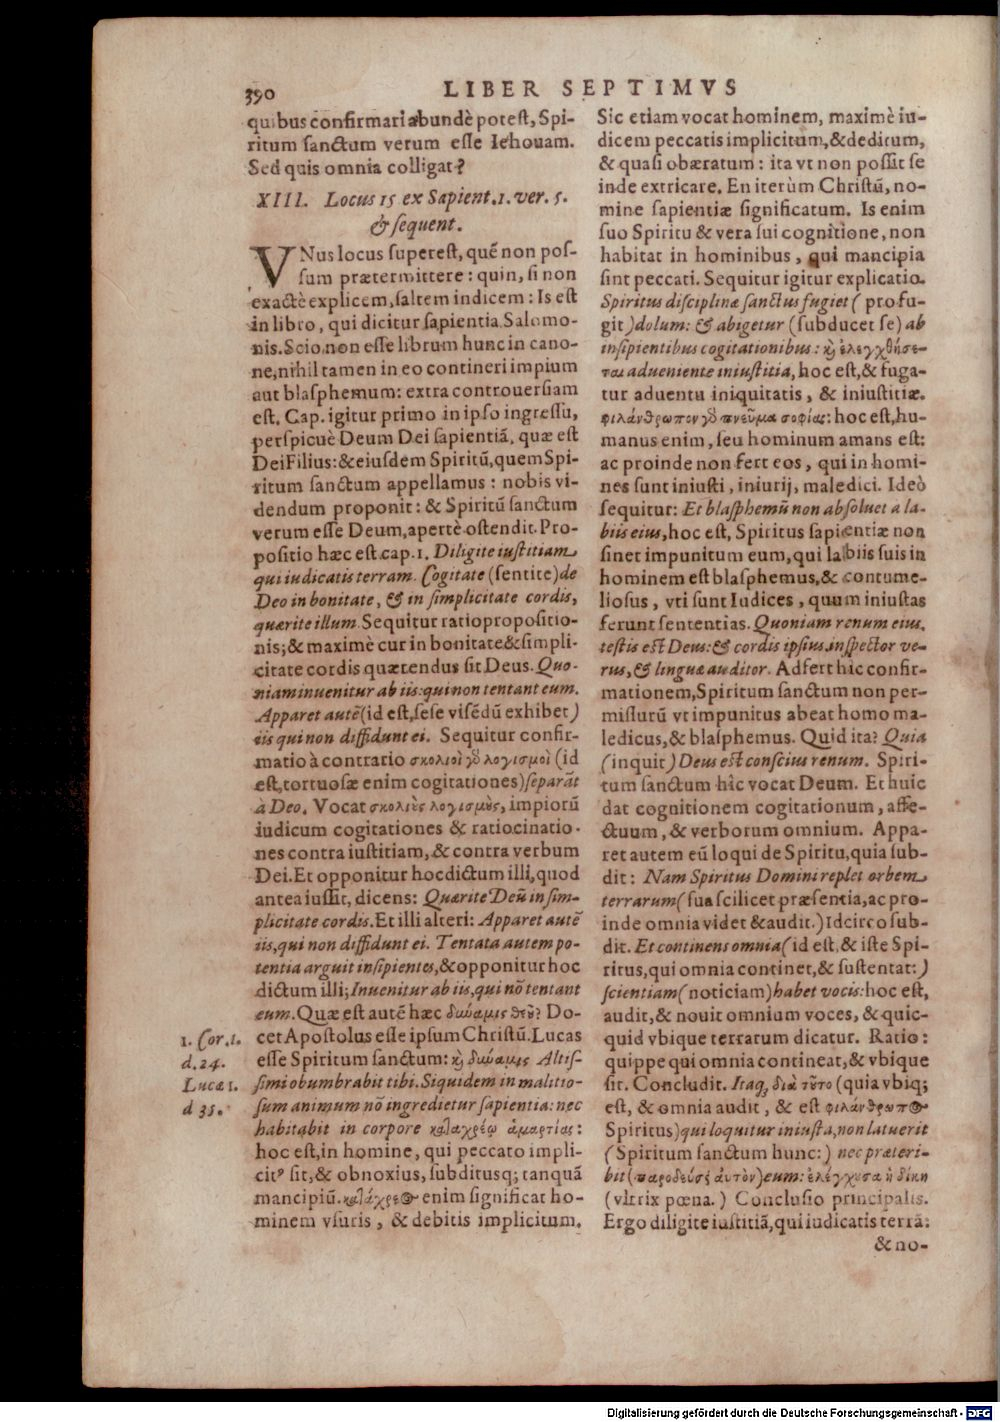 390
LIBER SEPTIMVS
quibus confirmari abundè potest, Spi-
ritum sanctum verum esse Iehouam.
Sed quis omnia colligat?
XIII. Locus 15 ex Sapient. 1. ver. 5.
& sequent.
VNus locus superest, quẽ non pos-
sum prætermittere: quin, si non
exactè explicem, saltem indicem: Is est
in libro, qui dicitur sapientia Salomo-
nis. Scio non esse librum hunc in cano-
ne, nihil tamen in eo contineri impium
aut blasphemum: extra controuersiam
est. Cap. igitur primo in ipso ingressu,
perspicuè Deum Dei sapientiã, quæ est
Dei Filius: & eiusdem Spiritũ, quem Spi-
ritum sanctum appellamus: nobis vi-
dendum proponit: & Spiritũ sanctum
verum esse Deum, apertè ostendit. Pro-
positio hæc est cap. 1. Diligite iustitiam
qui iudicatis terram. Cogitate (sentite) de
Deo in bonitate, & in simplicitate cordis,
quærite illum. Sequitur ratio propositio-
nis; & maximè cur in bonitate & simpli-
citate cordis quærendus sit Deus. Quo-
niam inuenitur ab iis: qui non tentant eum.
Apparet autẽ (id est, sese visẽdũ exhibet)
iis qui non diffidunt ei. Sequitur confir-
matio à contrario σκολιοὶ γὸ λογισμοὶ (id
est, tortuosæ enim cogitationes) separãt
à Deo. Vocat σκολιὺς λογισμὺς, impiorũ
iudicum cogitationes & ratiocinatio-
nes contra iustitiam, & contra verbum
Dei. Et opponitur hoc dictum illi, quod
antea iussit, dicens: Quærite Deũ in sim-
plicitate cordis. Et illi alteri: Apparet autẽ
iis, qui non diffidunt ei. Tentata autem po-
tentia arguit insipientes, & opponitur hoc
dictum illi; Inuenitur ab iis, qui nõ tentant
eum. Quæ est autẽ hæc δυύαμις θεῦ? Do-
cet Apostolus esse ipsum Christũ. Lucas
esse Spiritum sanctum: κ̀ δυύαμις Altis-
simi obumbrabit tibi. Siquidem in malitio-
sum animum nõ ingredietur sapientia: nec
habitabit in corpore καταχρέῳ ἁμαρτίας:
hoc est, in homine, qui peccato impli-
cit⁹ sit, & obnoxius, subditusq; tanquã
mancipiũ. κατάχρεος enim significat ho-
minem vsuris, & debitis implicitum.
1. Cor. 1.
d. 24.
Lucæ 1.
d 35.
Sic etiam vocat hominem, maximè iu-
dicem peccatis implicitum, & deditum,
& quasi obæratum: ita vt non possit se
inde extricare. En iterùm Christũ, no-
mine sapientiæ significatum. Is enim
suo Spiritu & vera sui cognitione, non
habitat in hominibus, qui mancipia
sint peccati. Sequitur igitur explicatio.
Spiritus disciplinæ sanctus fugiet (profu-
git) dolum: & abigetur (subducet se) ab
insipientibus cogitationibus: κ̀ ἐλεγχθήσε-
ται adueniente iniustitia, hoc est, & fuga-
tur aduentu iniquitatis, & iniustitiæ.
φιλάνθρωπον γὸ πνεῦμα σοφίας: hoc est, hu-
manus enim, seu hominum amans est:
ac proinde non fert eos, qui in homi-
nes sunt iniusti, iniurij, maledici. Ideò
sequitur: Et blasphemũ non absoluet a la-
biis eius, hoc est, Spiritus sapientiæ non
sinet impunitum eum, qui labiis suis in
hominem est blasphemus, & contume-
liosus, vti sunt Iudices, quum iniustas
ferunt sententias. Quoniam renum eius,
testis est Deus: & cordis ipsius inspector ve-
rus, & linguæ auditor. Adfert hîc confir-
mationem, Spiritum sanctum non per-
missurũ vt impunitus abeat homo ma-
ledicus, & blasphemus. Quid ita? Quia
(inquit) Deus est conscius renum. Spiri-
tum sanctum hîc vocat Deum. Et huic
dat cognitionem cogitationum, affe-
ctuum, & verborum omnium. Appa-
ret autem eũ loqui de Spiritu, quia sub-
dit: Nam Spiritus Domini replet orbem
terrarum (sua scilicet præsentia, ac pro-
inde omnia videt & audit.) Idcirco sub-
dit. Et continens omnia (id est, & iste Spi-
ritus, qui omnia continet, & sustentat:)
scientiam (noticiam) habet vocis: hoc est,
audit, & nouit omnium voces, & quic-
quid vbique terrarum dicatur. Ratio:
quippe qui omnia contineat, & vbique
sit. Concludit. Itaq; διὰ τῦτο (quia vbiq;
est, & omnia audit, & est φιλάνθρωπος
Spiritus) qui loquitur iniusta, non latuerit
(Spiritum sanctum hunc:) nec præteri-
bit (παροδεύσῃ ἀυτὸν) eum: ἐλέγχυσα ἡ δίκη
(vltrix pœna.) Conclusio principalis.
Ergo diligite iustitiã, qui iudicatis terrã:
& no-
Digitalisierung gefördert durch die Deutsche Forschungsgemeinschaft - DFG